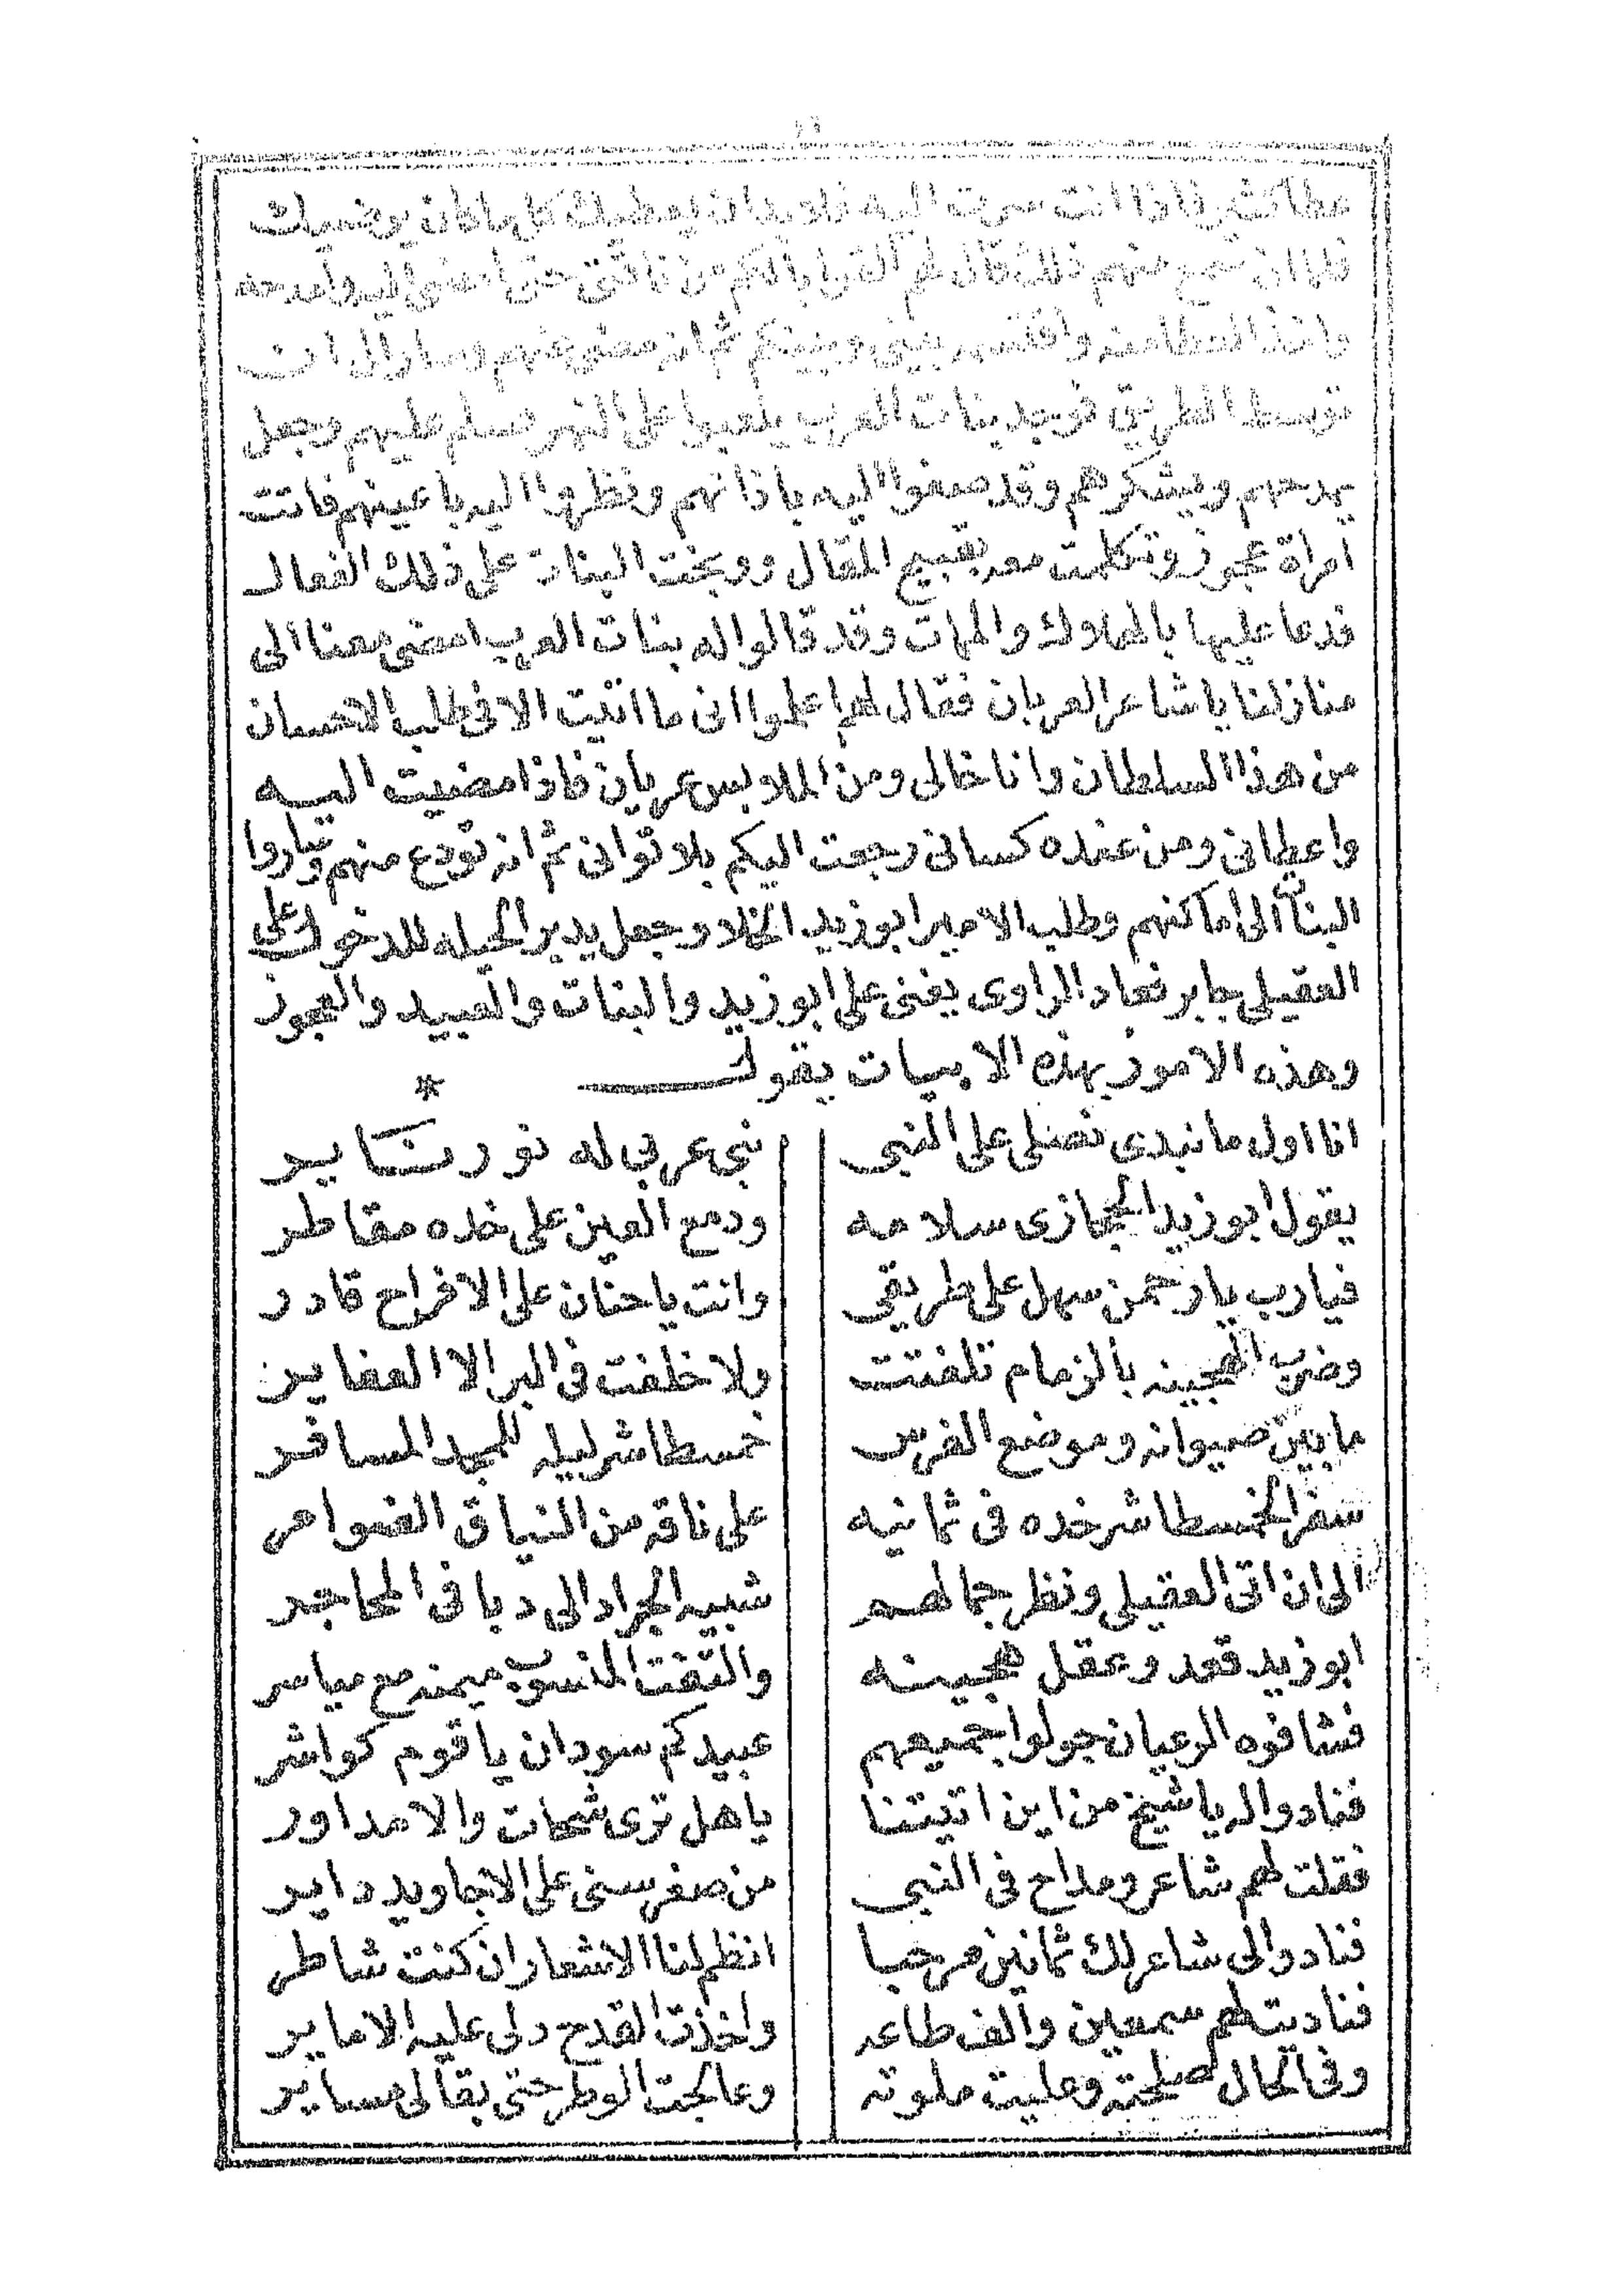 عطا كثير فاذا انت سرت اليه فلا بد ان يعطيك كل ما كان يرضيك
فلما ان سمع منهم ذلك قال لهم اتركوا بالكم من ناقتى حتى امضى اليه وامدحه
واخذ العطا منه واقسمه بينى وبينكم ثم انه مضى عنهم وسار الى ان
توسط الطريق فوجد بنات العرب يلعبوا على النهر فسلم عليهم وجعل
يمدحهم ويشكرهم وقد صغوا اليه باذانهم ونظروا اليه باعينهم فاتت
امراة عجوز وتكلمت معه بقبيح المقال ووبخت البنات على ذلك الفعال
فدعا عليها بالهلاك والمات وقد قالوا له بنات العرب امضى معنا الى
منازلنا يا شاعر العربان فقال لهم اعلموا انى ما اتيت الا فى طلب الاحسان
من هذا السلطان وانا خالى ومن الملابس عريان فاذا مضيت اليه
واعطانى ومن عنده كسانى رجعت اليكم بلا توانى ثم انه تودع منهم وساروا
البنات الى اماكنهم وطلب الامير ابوزيد الخلا وجعل يدبر الحيله للدخول على
العقيلى جابر فعاد الراوى يغنى على ابوزيد والبنات والعبيد والعجوز
وهذه الامور بهذه الابيات يقول *
انا اول ما نبدى نصلى على النبى نبى عربى له نور
يقول ابوزيد الحجازى سلامه ودمع العين على خده مقاطر
فيارب يا رحمن سهل على طريقى وانت يا حنان على الافراح قادر
وضرب الهجينه بالزمام تلفتت ولا خلفت فى البر الا العفاير
ما بين صيوانه وموضع الفرس خمسطاشر ليله للمجد المسافر
سفر الخمسطاشر خده فى ثمانيه على ناقه من النياق الضوامر
الى ان اتى العقيلى ونظر جمالهم شبيه الجراد الى دبا فى المحاجر
ابوزيد قعد وعقل هجينه والتفت المنسوب ميمنه مع مياسر
فشافوه الرعيان جولوا جميعهم عبيدكم سودان يا قوم كواشر
فنادوا له يا شيخ من اين اتيتنا يا هل ترى شحات والا مداور
فقلت لهم شاعر ومداح فى النبى من صغر سنى على الاجاويد داير
فنادوا لى شاعر لك ثمانين مرحبا انظم لنا الاشعار ان كنت شاطر
فناديت لهم سمعين والف طاعه واخذت القدح دلى عليه الاماير
وفى الحال صلحته وعليت ملوته وعالجت الوطر حتى بقا لى مساير